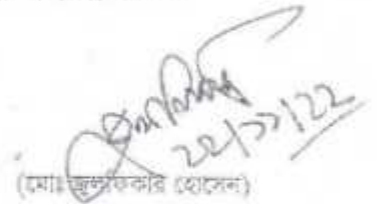 ২২/১১/২২
(মোঃ জুলফিকার হোসেন)